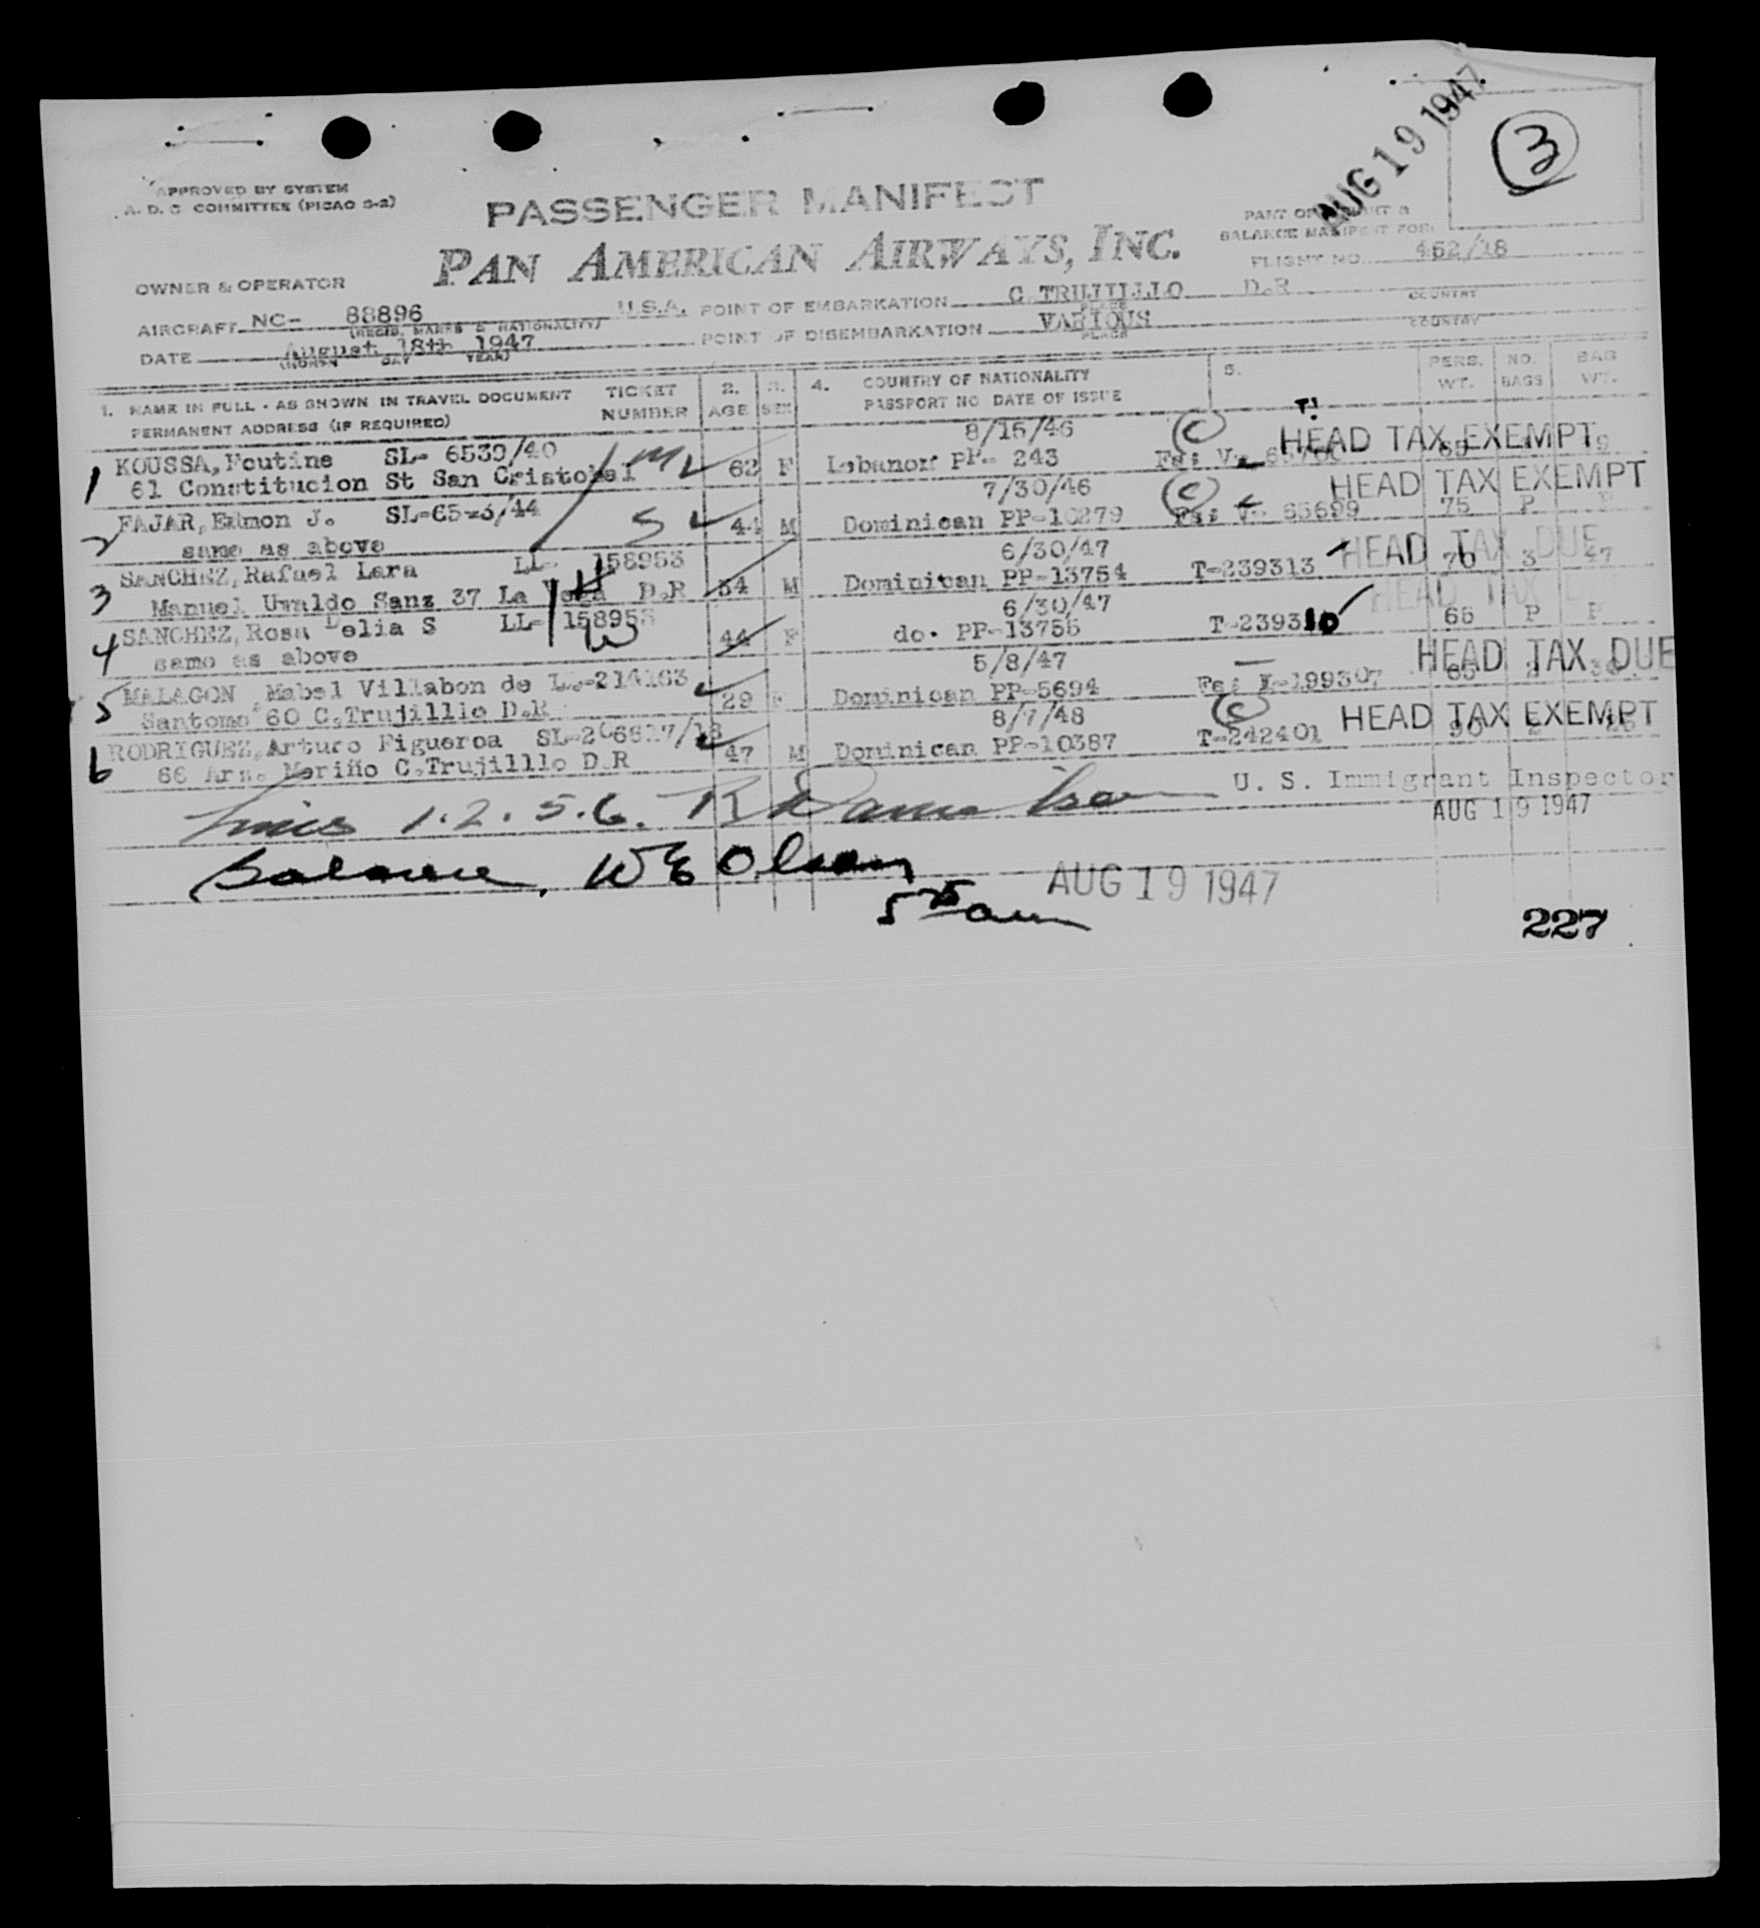 AUG 19 1947
3
APPROVED BY SYSTEM
A. D. C COMMITTEE (PICAO S-2)
PASSENGER MANIFEST
PART OF
BALANCE MANIFEST FOR:
OWNER & OPERATOR
PAN AMERICAN AIRWAYS, INC.
FLIGHT NO. 452/18
AIRCRAFT NC- 88896 U.S.A. POINT OF EMBARKATION C.TRUJILLLO D.R
(REGIS. MARKS & NATIONALITY) PLACE COUNTRY
DATE August 18th 1947 POINT OF DISEMBARKATION VARIOUS
(MONTH DAY YEAR) PLACE COUNTRY
1. NAME IN FULL - AS SHOWN IN TRAVEL DOCUMENT TICKET 2. 3. 4. COUNTRY OF NATIONALITY 5. PERS. NO. BAG
PERMANENT ADDRESS (IF REQUIRED) NUMBER AGE SEX PASSPORT NO DATE OF ISSUE WT. BAGS WT.
8/15/46 C HEAD TAX EXEMPT
1 KOUSSA, Foutine SL- 6539/40 62 F Lebanon PP- 243
61 Constitucion St San Cristobal
7/30/46 C HEAD TAX EXEMPT
2 FAJAR, Edmon J. 44 M Dominican PP-10279 65699 75 P
same as above
6/30/47 HEAD TAX DUE
3 SANCHEZ, Rafael Lara LL- 158953 54 M Dominican PP-13754 T-239313 70 3 47
Manuel Uvaldo Sanz 37 La Vega D.R
6/30/47 HEAD TAX
4 SANCHEZ, Rosa Delia S LL- 44 F do. PP-13755 T-239310 66 P P
same as above
5/8/47 HEAD TAX DUE
5 MALAGON, Mabel Villabon de 29 Dominican PP-5694
Santome 60 C.Trujilllo D.R
8/7/48 C HEAD TAX EXEMPT
6 RODRIGUEZ, Arturo Figueroa 47 M Dominican PP-10387 T-242401
66 Meriño C.Trujilllo D.R
Lines 1.2.5.6.
U. S. Immigrant Inspector
AUG 19 1947
Balance, W E Olsen
AUG 19 1947
227